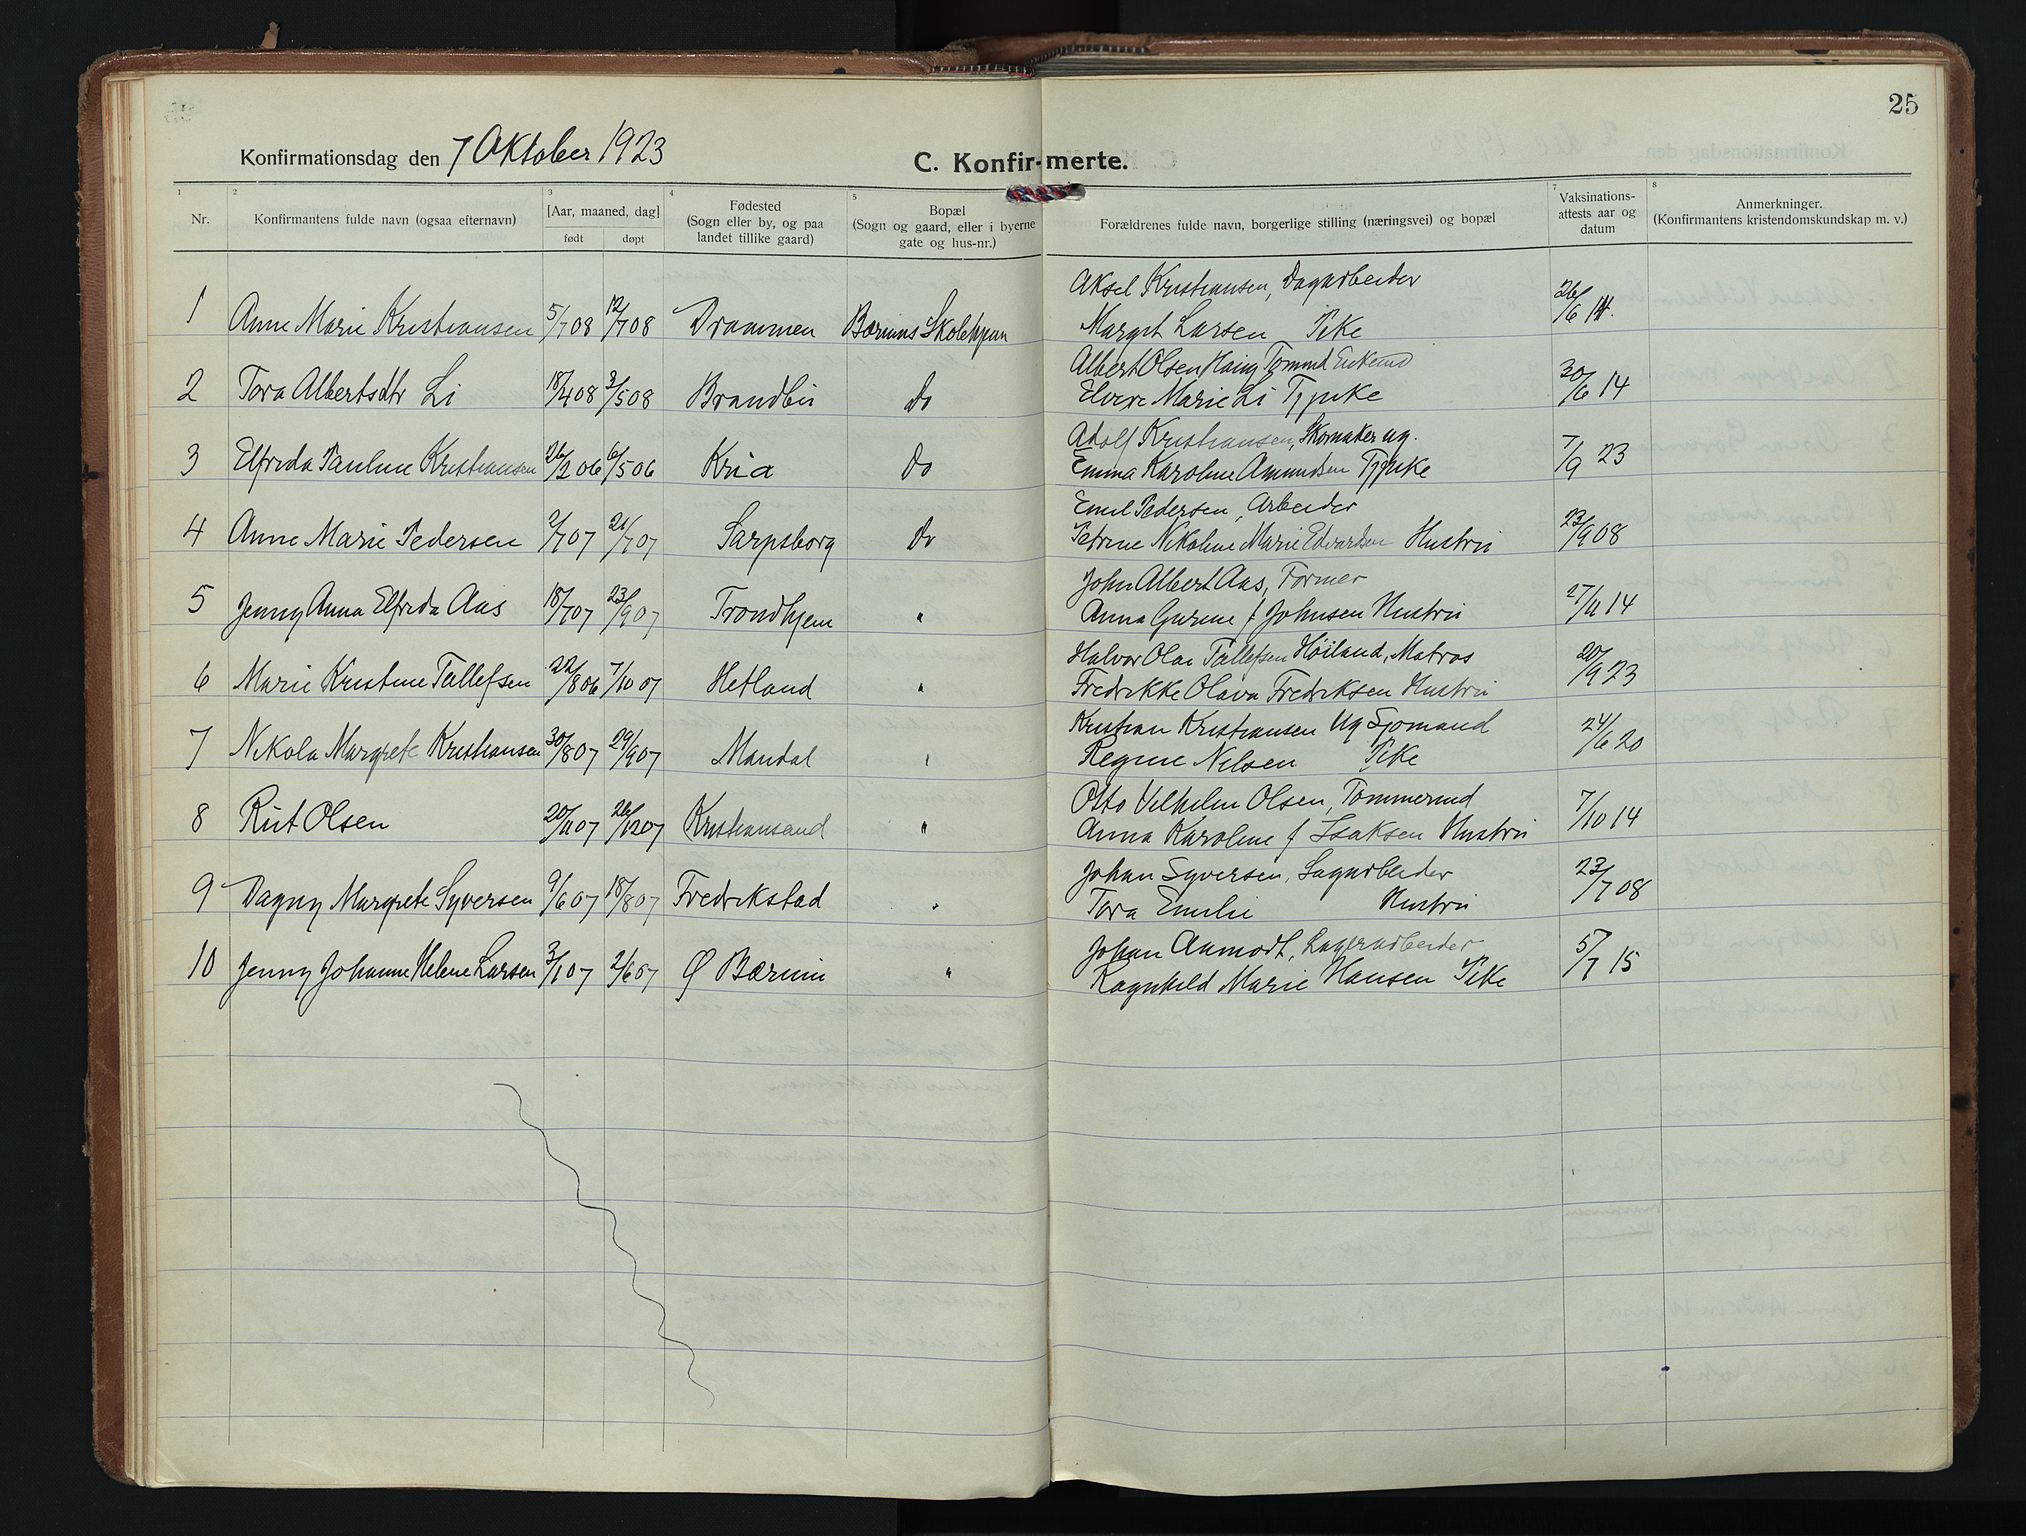 25
Konfirmationsdag den 7 Oktober 1923
C. Konfir-merte.
1 2 3 4 5 7 8
Nr.
Konfirmantens fulde navn (ogsaa efternavn)
[Aar, maaned, dag]
født døpt
Fødested
(Sogn eller by, og paa
landet tillike gaard)
Bopæl
(Sogn og gaard, eller i byerne
gate og hus-nr.)
Forældrenes fulde navn, borgerlige stilling (næringsvei) og bopæl
Vaksinations-
attests aar og
datum
Anmerkninger.
(Konfirmantens kristendomskundskap m. v.)
Aksel Kristiansen, Dagarbeider
1 Anne Marie Kristiansen 5/7 08 12/7 08 Drammen Bærums Skolehjem Margit Larsen Pike 26/6 14.
Albert Olsen Tømmd Enkemd
2 Tora Albertsdtr Li 18/4 08 3/5 08 Brandbu Do Marie Li Tjpike 30/6 14
Adolf Kristiansen, Skomaker ug.
3 Elfrida Pauline Kristiansen 26/2 06 6/5 06 Kria Do Emma Karoline Amundsen Tjpike 7/9 23
Emil Pedersen, Arbeider
4 Anne Marie Pedersen 2/7 07 21/7 07 Sarpsborg Do Petrine Nikoline Marie Edvardsen Hustru 23/9 08
John Albert Aas, Former
5 Jenny Anna Elfrida Aas 18/7 07 23/9 07 Trondhjem " Anna Gurine f Johnsen Hustru 27/11 14
Halvor Olai Tallefsen Høiland, Matros
6 Marie Kristine Tallefsen 22/8 06 7/10 07 Hetland " Fredrikke Olava Fredriksen Hustru 20/9 23
Kristian Kristiansen Ug Sjømand
7 Nikola Margrete Kristiansen 30/8 07 29/9 07 Mandal " Regine Nilsen Pike 24/6 20
Otto Vilhelm Olsen, Tømmermd
8 Rut Olsen 20/11 07 26/12 07 Kristiansand " Anna Karoline f Isaksen Hustru 7/10 14
Johan Syversen, Sagarbeider
9 Dagny Margrete Syversen 9/6 07 18/8 07 Fredrikstad " Tora Emilie Hustru 23/7 08
Johan Aamodt, Lagerarbeider
10 Jenny Johanne Helene Larsen 3/1 07 2/6 07 Ø Bærum " Ragnhild Marie Hansen Pike 5/7 15